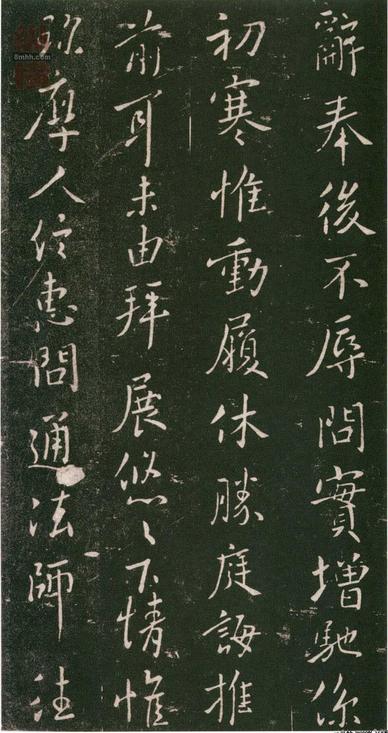 辭奉後不辱問實增馳係
初寒惟動履休勝庭誨推
前耳未由拜展悠悠下情惟
珎摩人信惠問通法師往
8mhh.com